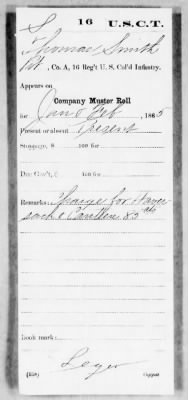 S 16 U.S.C.T.
Thomas Smith
Pvt, Co. A, 16 Reg't U. S. Col'd Infantry.
Appears on
Company Muster Roll
for Jan & Feb, 1865
Present or absent Present
Stoppage, $ 100 for
Due Gov't, $ 100 for
Remarks: Charge for Haver
sack & Canteen 83 cts
Book mark:
Leger
(358) Copyist.